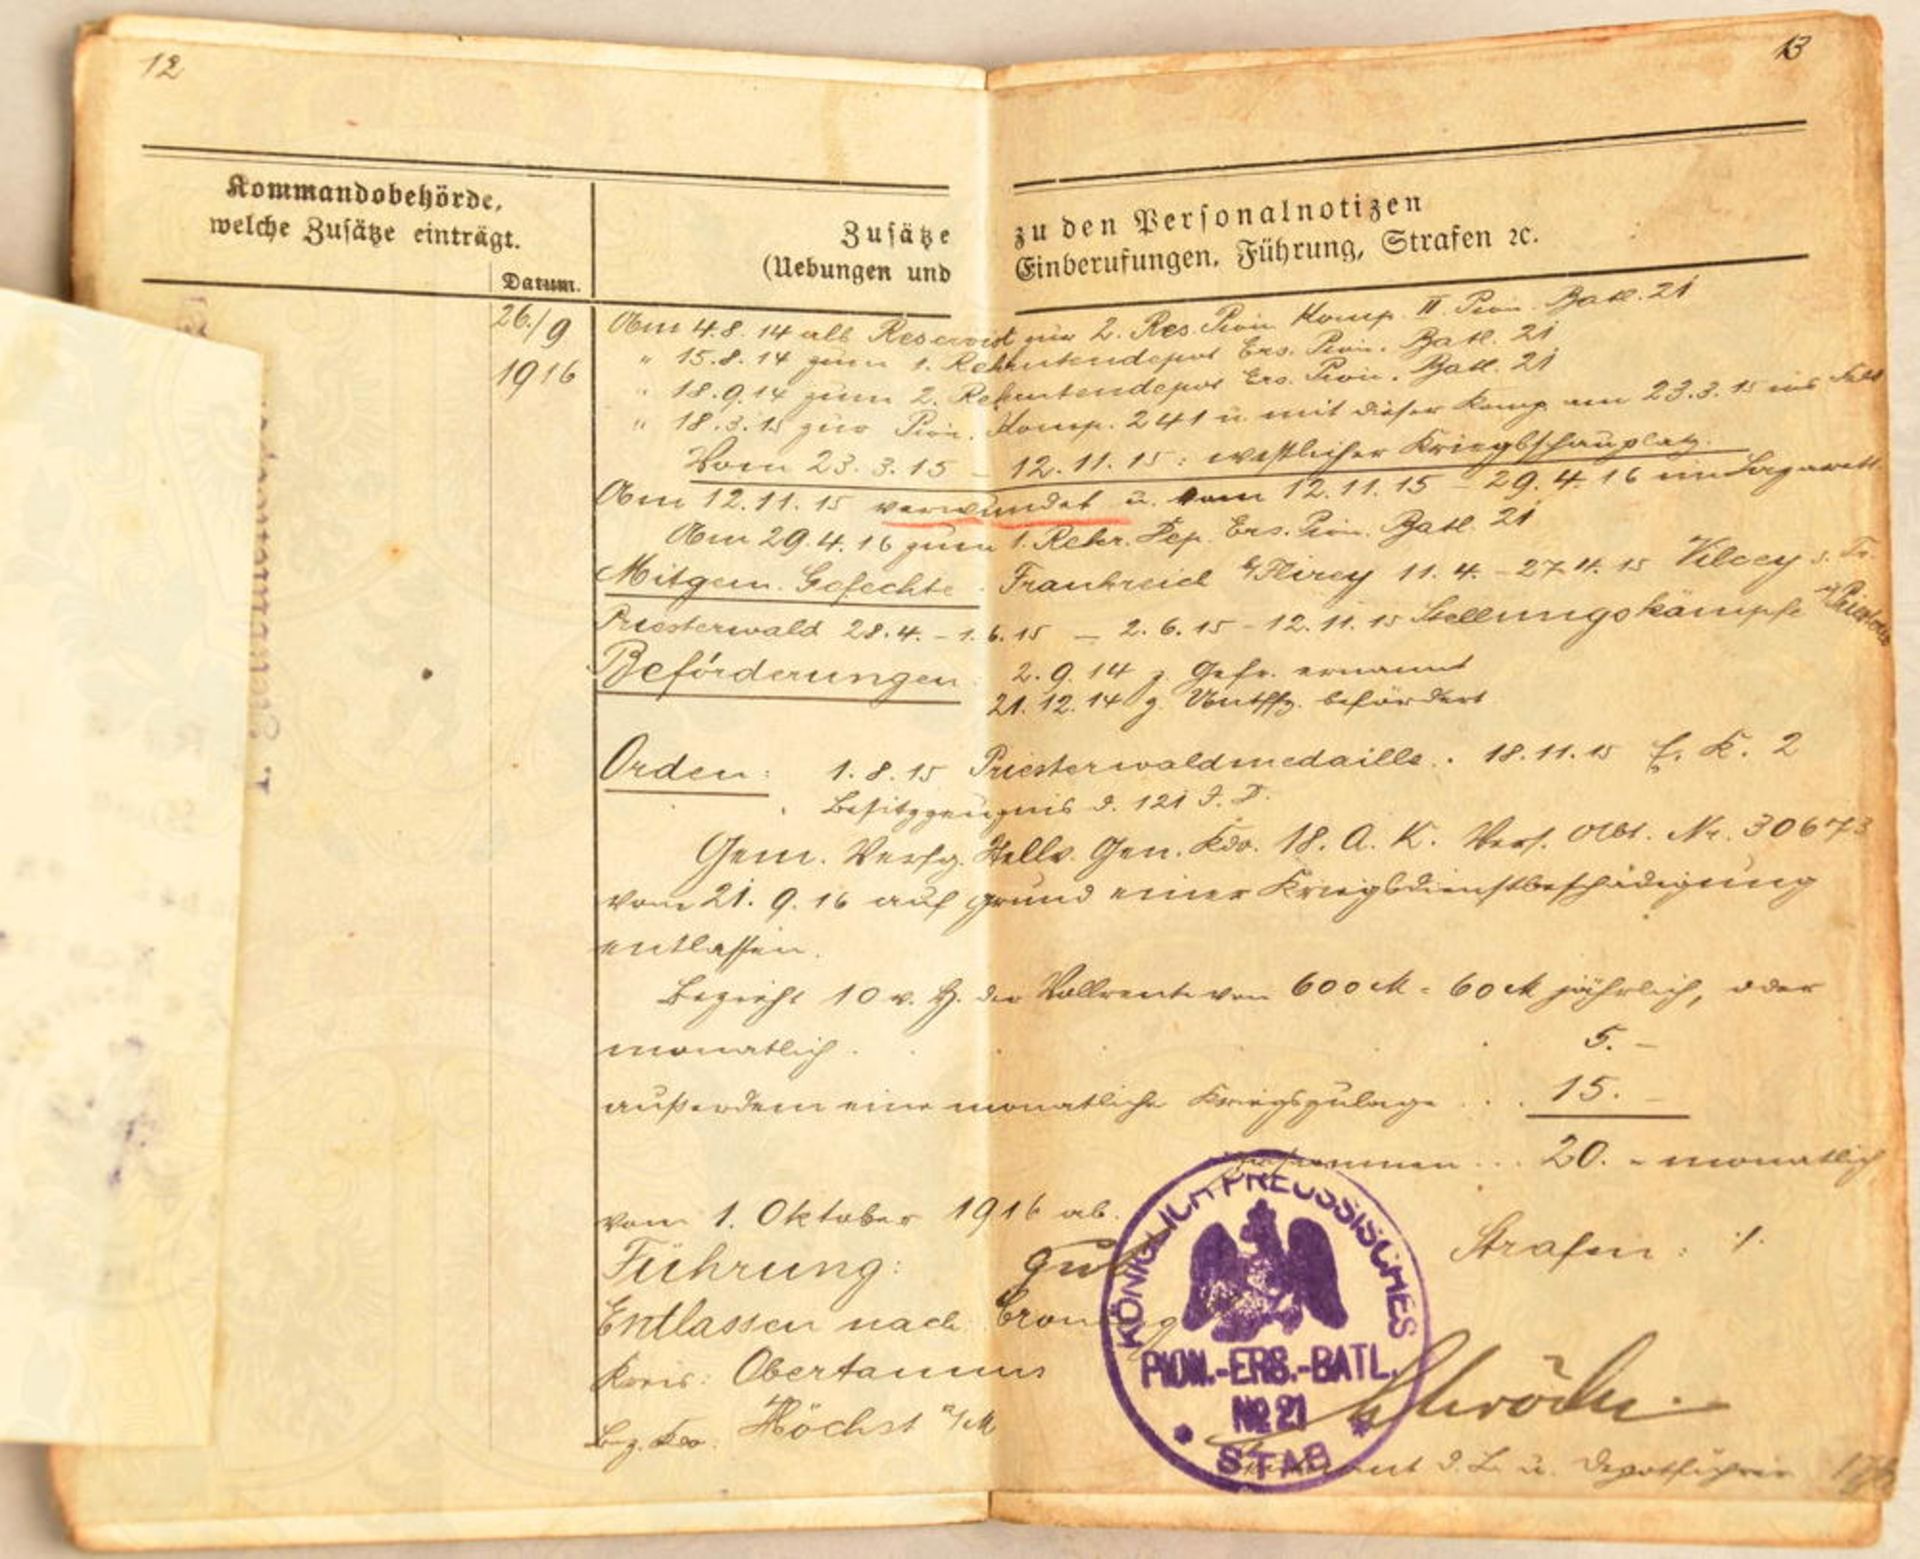 12
13
Kommandobehörde,
welche Zusätze einträgt.
Datum.
Zusätze zu den Personalnotizen
(Uebungen und Einberufungen, Führung, Strafen ꝛc.
26./9
1916
Am 4.8.14 als Reservist zur 2. Res. Pion. Komp. II. Pion. Batl. 21
" 15.8.14 zum 1. Rekrutendepot Ers. Pion. Batl. 21
" 18.9.14 zum 2. Rekrutendepot Ers. Pion. Batl. 21
" 18.3.15 zur Pion. Komp. 241 u. mit dieser Komp. am 23.3.15 ins Feld
Vom 23.3.15 – 12.11.15: westlicher Kriegsschauplatz.
Am 12.11.15 verwundet u. vom 12.11.15 – 29.4.16 im Lazarett
Am 29.4.16 zum 1. Rekr. Dep. Ers. Pion. Batl. 21
Mitgem. Gefechte: Frankreich Flirey 11.4. – 27.4.15 Vilcey s. Tr.
Priesterwald 28.4. – 1.6.15 – 2.6.15 – 12.11.15 Stellungskämpfe
Beförderungen: 2.9.14 z. Gefr. ernannt
21.12.14 z. Untffz. befördert
Orden: 1.8.15 Priesterwaldmedaille. 18.11.15 E. K. 2
Besitzzeugnis d. 121 I. D.
Gem. Verfg. Stellv. Gen. Kdo. 18. A. K. Vers. Abt. Nr. 30673
vom 21.9.16 auf grund einer Kriegsdienstbeschädigung
entlassen.
Bezieht 10 v. H. der Vollrente von 600 M = 60 M jährlich, oder
monatlich . 5. –
außerdem eine monatliche Kriegszulage . . . 15. –
zusammen . . . 20. – monatlich
vom 1. Oktober 1916 ab.
Führung: gut Strafen: ./.
Entlassen nach
Kreis: Obertaunus
Bez. Kdo. Höchst a/M
KÖNIGLICH PREUSSISCHES
PION.-ERS.-BATL.
No 21
STAB
Schröder
Leutnant d. L. u. Depotführer